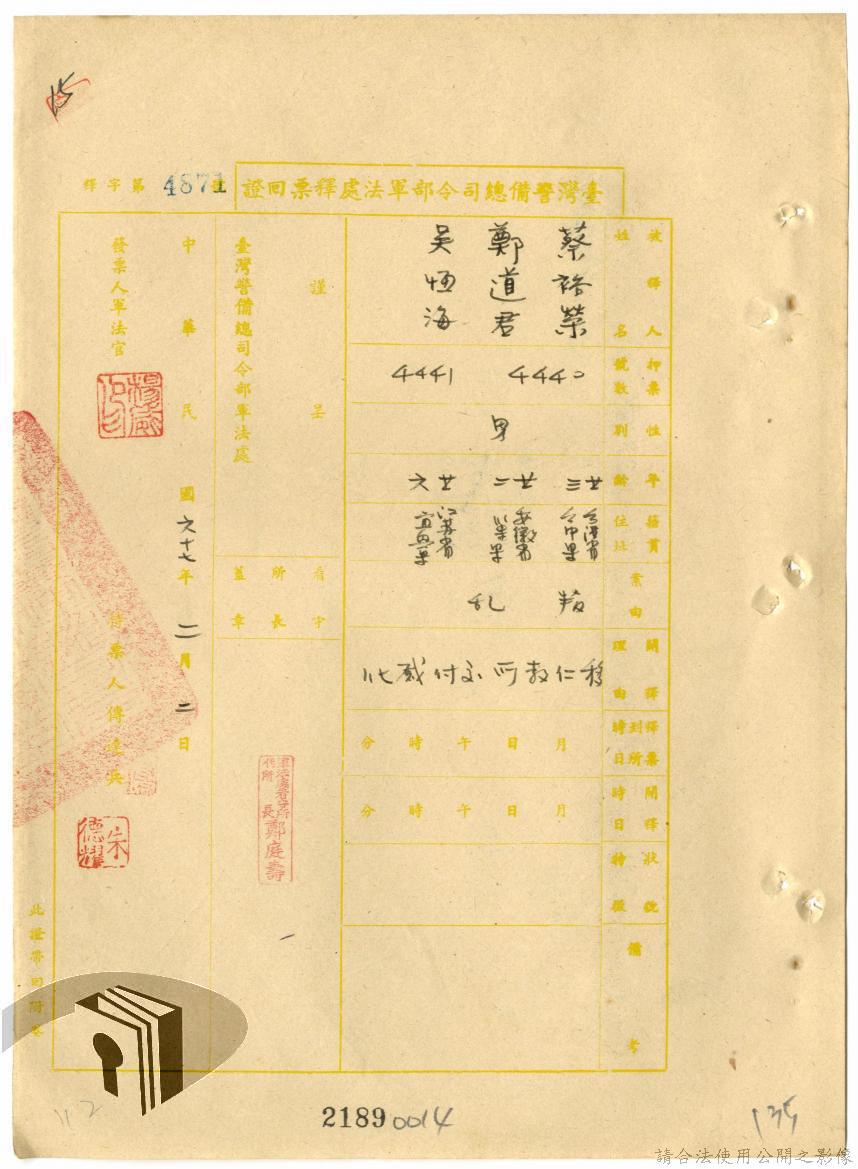 臺灣警備總司令部軍法處釋票回證
釋字第4871號
被釋人姓名
蔡裕榮
鄭道君
吳恆海
押票號數
4440
4441
性別
男
年齡
廿三
廿二
廿六
籍貫住址
台灣省台中縣
安徽省
江蘇省宜興縣
案由
叛乱
開釋理由
移仁教所交付感化
釋票到所時日
月 日 午 時 分
開釋時日
月 日 午 時 分
狀貌特徵
備考
謹呈
臺灣警備總司令部軍法處
看守所所長蓋章
軍法處看守所
代所長鄭庭壽
中華民國六十七年二月二日
發票人軍法官
持票人傅達吳
朱德耀
此證帶回附卷
2189 0014
112
135
請合法使用公開之影像